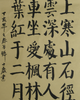 上寒山石徑
雲深處有人
車坐愛楓林
葉紅于二月